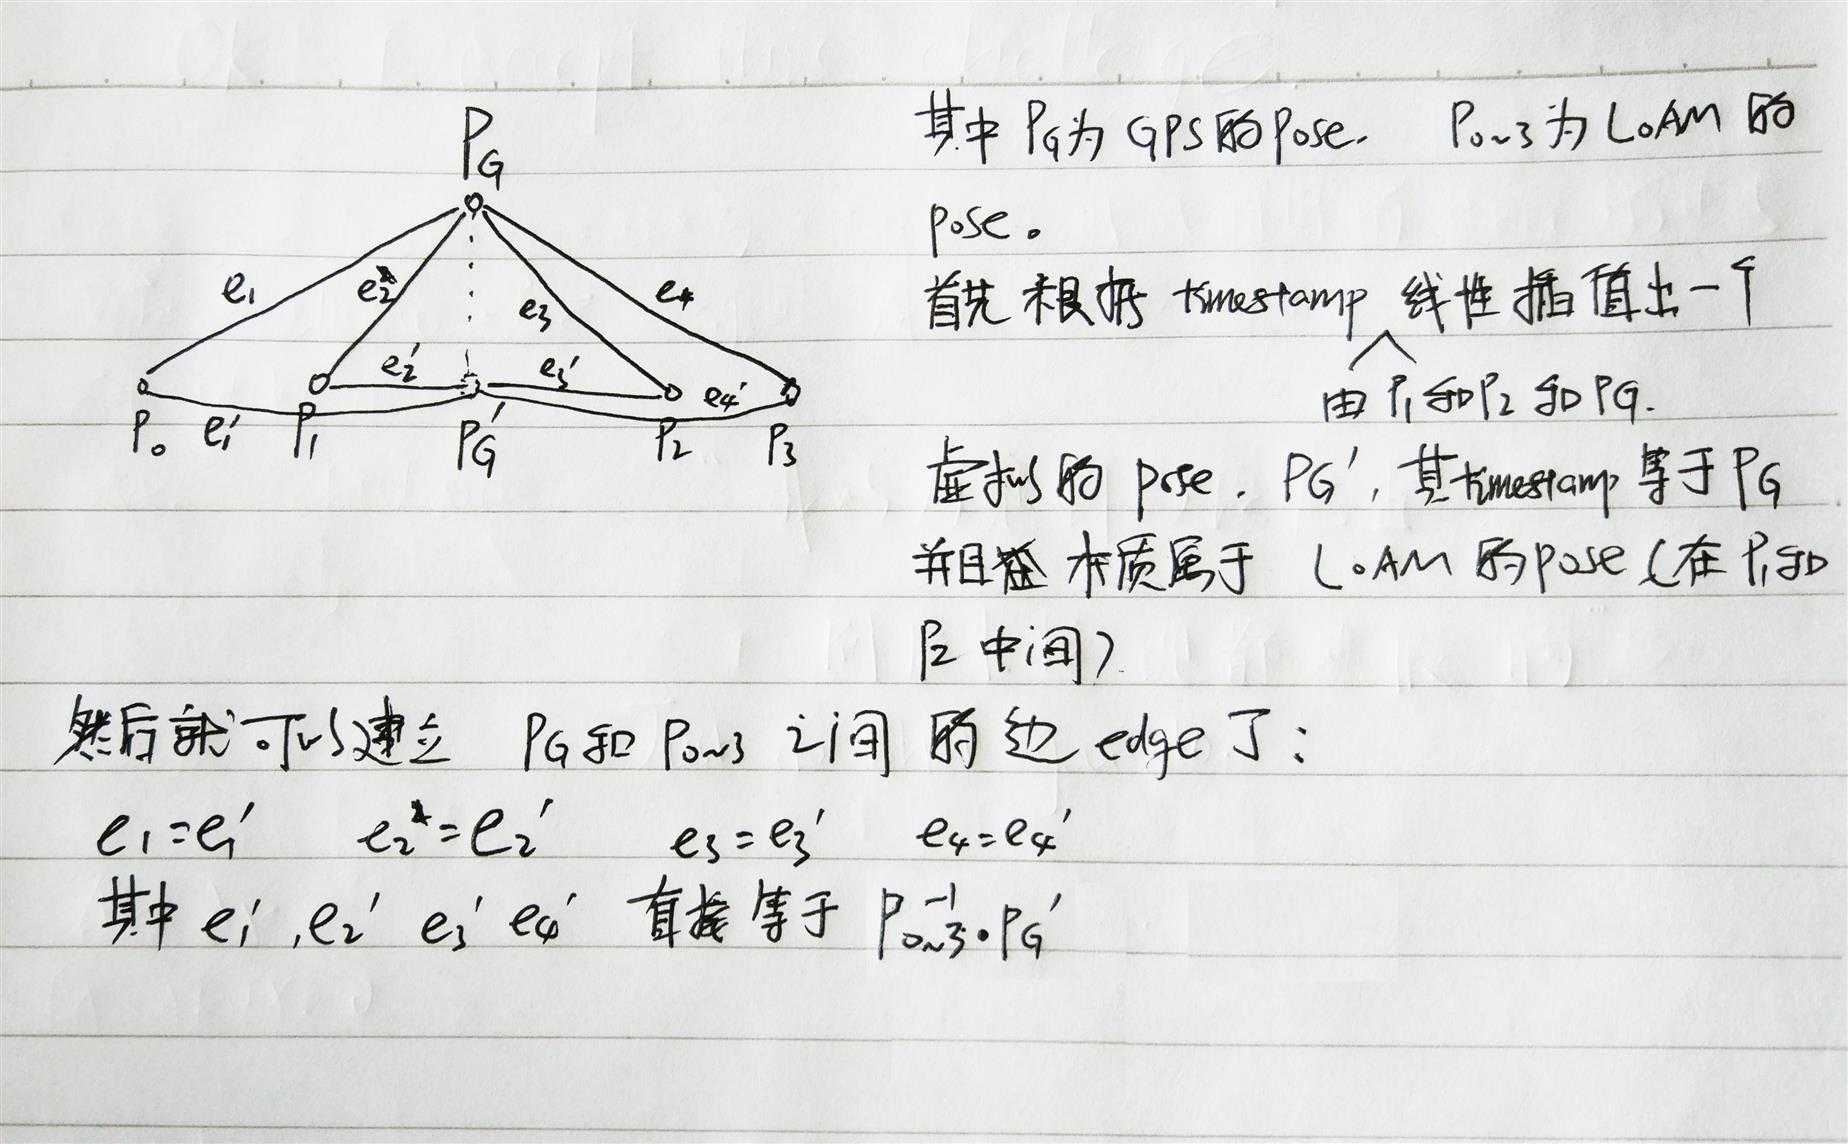 P_G
e₁
e₂
e₃
e₄
e₂'
e₃'
e₄'
P₀ e₁' P₁ P_G' P₂ P₃
其中 P_G为 GPS的pose. P₀~₃为 LOAM 的
pose。
首先根据 timestamp 线性插值出一个
由 P₁和P₂和PG.
虚拟的 pose. PG', 其timestamp等于PG
并且 本质属于 LOAM 的pose (在 P₁和
P₂ 中间)
然后就可以建立 PG和 P₀~₃ 之间的边 edge了:
e₁=e₁' e₂=e₂' e₃=e₃' e₄=e₄'
其中 e₁', e₂' e₃' e₄' 直接等于 P₀~₃⁻¹·PG'